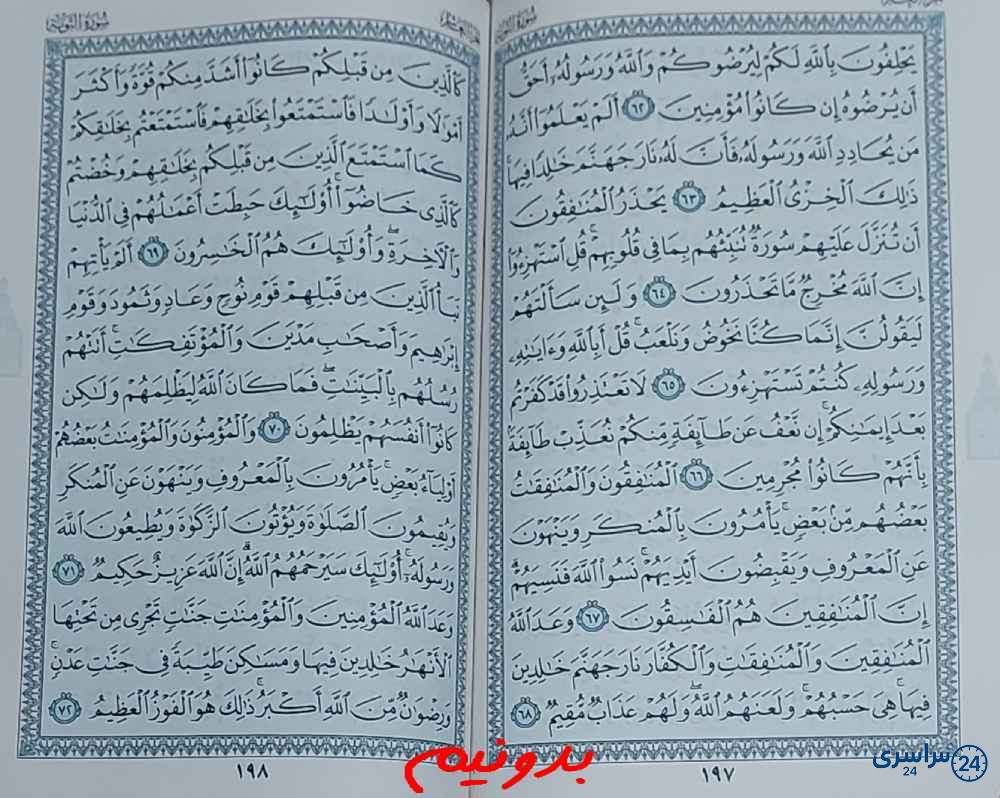 سُورَةُ التَّوْبَةِ
يَحْلِفُونَ بِٱللَّهِ لَكُمْ لِيُرْضُوكُمْ وَٱللَّهُ وَرَسُولُهُۥٓ أَحَقُّ
أَن يُرْضُوهُ إِن كَانُوا۟ مُؤْمِنِينَ ٦٢ أَلَمْ يَعْلَمُوٓا۟ أَنَّهُۥ
مَن يُحَادِدِ ٱللَّهَ وَرَسُولَهُۥ فَأَنَّ لَهُۥ نَارَ جَهَنَّمَ خَٰلِدًا فِيهَا ۚ
ذَٰلِكَ ٱلْخِزْىُ ٱلْعَظِيمُ ٦٣ يَحْذَرُ ٱلْمُنَٰفِقُونَ
أَن تُنَزَّلَ عَلَيْهِمْ سُورَةٌ تُنَبِّئُهُم بِمَا فِى قُلُوبِهِمْ ۚ قُلِ ٱسْتَهْزِءُوٓا۟
إِنَّ ٱللَّهَ مُخْرِجٌ مَّا تَحْذَرُونَ ٦٤ وَلَئِن سَأَلْتَهُمْ
لَيَقُولُنَّ إِنَّمَا كُنَّا نَخُوضُ وَنَلْعَبُ ۚ قُلْ أَبِٱللَّهِ وَءَايَٰتِهِۦ
وَرَسُولِهِۦ كُنتُمْ تَسْتَهْزِءُونَ ٦٥ لَا تَعْتَذِرُوا۟ قَدْ كَفَرْتُم
بَعْدَ إِيمَٰنِكُمْ ۚ إِن نَّعْفُ عَن طَآئِفَةٍ مِّنكُمْ نُعَذِّبْ طَآئِفَةًۢ
بِأَنَّهُمْ كَانُوا۟ مُجْرِمِينَ ٦٦ ٱلْمُنَٰفِقُونَ وَٱلْمُنَٰفِقَٰتُ
بَعْضُهُم مِّنۢ بَعْضٍ ۚ يَأْمُرُونَ بِٱلْمُنكَرِ وَيَنْهَوْنَ
عَنِ ٱلْمَعْرُوفِ وَيَقْبِضُونَ أَيْدِيَهُمْ ۚ نَسُوا۟ ٱللَّهَ فَنَسِيَهُمْ ۗ
إِنَّ ٱلْمُنَٰفِقِينَ هُمُ ٱلْفَٰسِقُونَ ٦٧ وَعَدَ ٱللَّهُ
ٱلْمُنَٰفِقِينَ وَٱلْمُنَٰفِقَٰتِ وَٱلْكُفَّارَ نَارَ جَهَنَّمَ خَٰلِدِينَ
فِيهَا ۚ هِىَ حَسْبُهُمْ ۚ وَلَعَنَهُمُ ٱللَّهُ ۖ وَلَهُمْ عَذَابٌ مُّقِيمٌ ٦٨
١٩٧
سُورَةُ التَّوْبَةِ
كَٱلَّذِينَ مِن قَبْلِكُمْ كَانُوٓا۟ أَشَدَّ مِنكُمْ قُوَّةً وَأَكْثَرَ
أَمْوَٰلًا وَأَوْلَٰدًا فَٱسْتَمْتَعُوا۟ بِخَلَٰقِهِمْ فَٱسْتَمْتَعْتُم بِخَلَٰقِكُمْ
كَمَا ٱسْتَمْتَعَ ٱلَّذِينَ مِن قَبْلِكُم بِخَلَٰقِهِمْ وَخُضْتُمْ
كَٱلَّذِى خَاضُوٓا۟ ۚ أُو۟لَٰٓئِكَ حَبِطَتْ أَعْمَٰلُهُمْ فِى ٱلدُّنْيَا
وَٱلْءَاخِرَةِ ۖ وَأُو۟لَٰٓئِكَ هُمُ ٱلْخَٰسِرُونَ ٦٩ أَلَمْ يَأْتِهِمْ
نَبَأُ ٱلَّذِينَ مِن قَبْلِهِمْ قَوْمِ نُوحٍ وَعَادٍ وَثَمُودَ وَقَوْمِ
إِبْرَٰهِيمَ وَأَصْحَٰبِ مَدْيَنَ وَٱلْمُؤْتَفِكَٰتِ ۚ أَتَتْهُمْ
رُسُلُهُم بِٱلْبَيِّنَٰتِ ۖ فَمَا كَانَ ٱللَّهُ لِيَظْلِمَهُمْ وَلَٰكِن
كَانُوٓا۟ أَنفُسَهُمْ يَظْلِمُونَ ٧٠ وَٱلْمُؤْمِنُونَ وَٱلْمُؤْمِنَٰتُ بَعْضُهُمْ
أَوْلِيَآءُ بَعْضٍ ۚ يَأْمُرُونَ بِٱلْمَعْرُوفِ وَيَنْهَوْنَ عَنِ ٱلْمُنكَرِ
وَيُقِيمُونَ ٱلصَّلَوٰةَ وَيُؤْتُونَ ٱلزَّكَوٰةَ وَيُطِيعُونَ ٱللَّهَ
وَرَسُولَهُۥٓ ۚ أُو۟لَٰٓئِكَ سَيَرْحَمُهُمُ ٱللَّهُ ۗ إِنَّ ٱللَّهَ عَزِيزٌ حَكِيمٌ ٧١
وَعَدَ ٱللَّهُ ٱلْمُؤْمِنِينَ وَٱلْمُؤْمِنَٰتِ جَنَّٰتٍ تَجْرِى مِن تَحْتِهَا
ٱلْأَنْهَٰرُ خَٰلِدِينَ فِيهَا وَمَسَٰكِنَ طَيِّبَةً فِى جَنَّٰتِ عَدْنٍ ۚ
وَرِضْوَٰنٌ مِّنَ ٱللَّهِ أَكْبَرُ ۚ ذَٰلِكَ هُوَ ٱلْفَوْزُ ٱلْعَظِيمُ ٧٢
١٩٨
بدونیم
سراسری
24
24